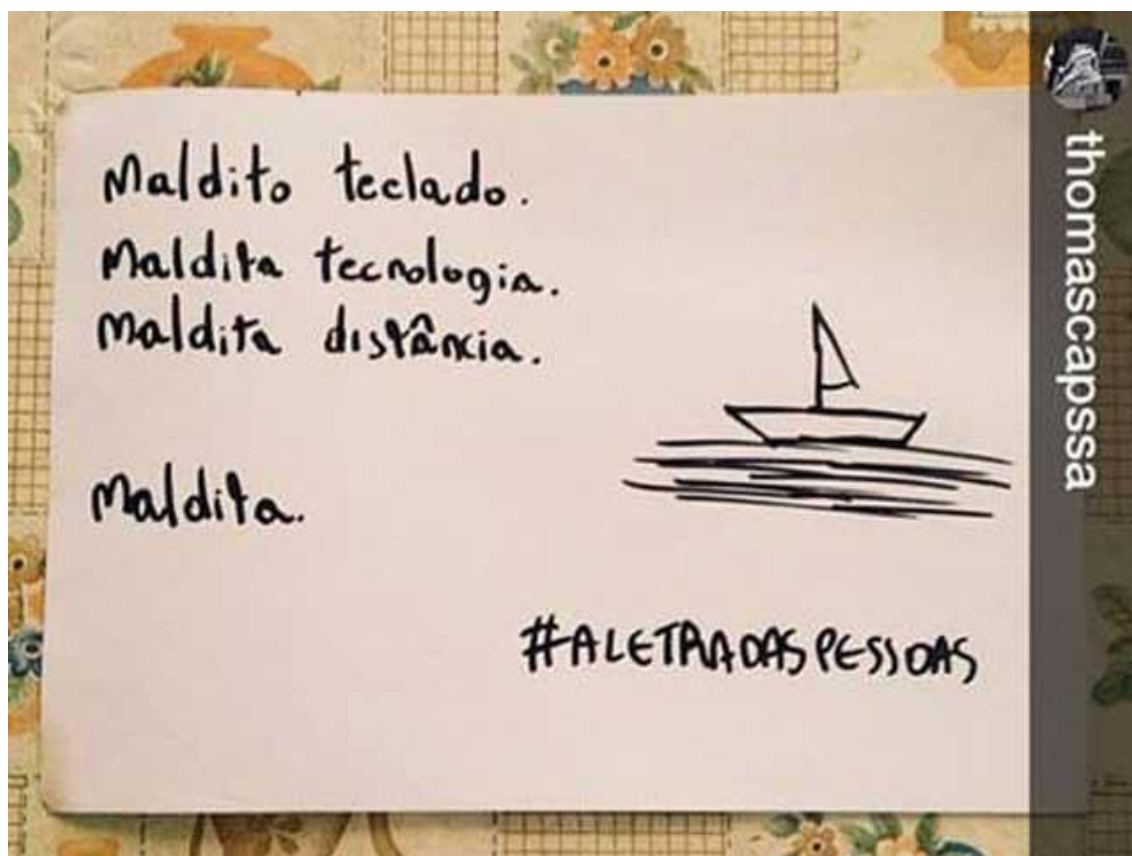 Maldito teclado.
Maldita tecnologia.
Maldita distância.
Maldita.
#ALETRADASPESSOAS
thomascapssa